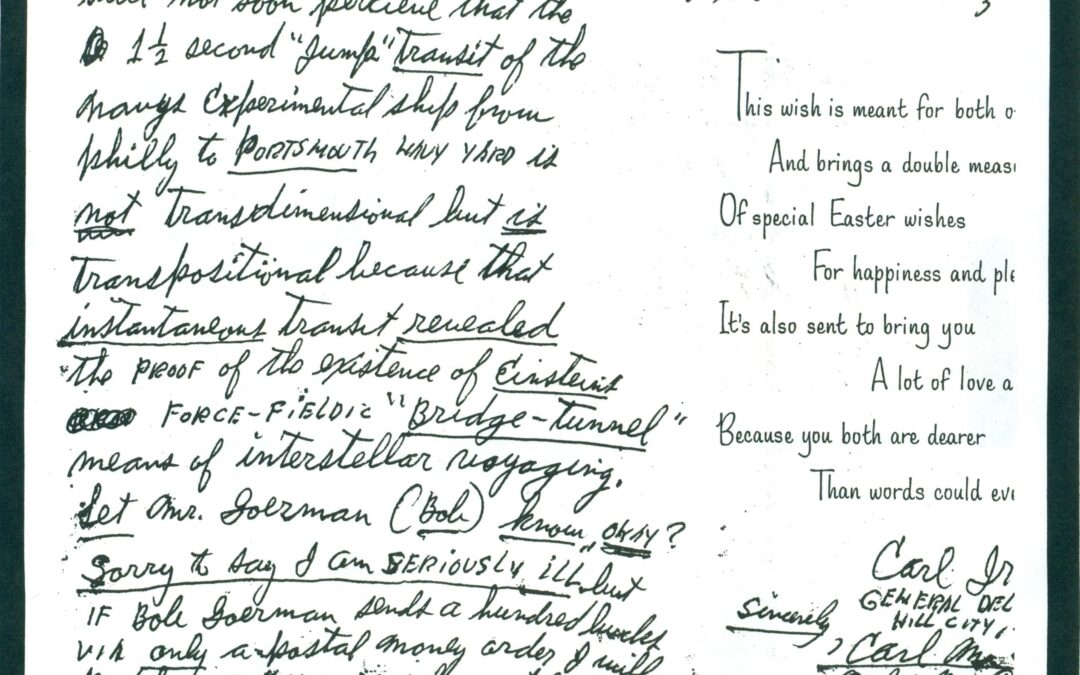 not soon percieve that the
1 1/2 second "Jump" transit of the
navys Experimental ship from
philly to PORTSMOUTH NAVY YARD is
not transdimensional but is
transpositional because that
instantaneous transit revealed
the PROOF of the existence of Einsteins
FORCE-FiELDic "Bridge-tunnel"
means of interstellar voyaging.
Let Mr. Goerman (Bob) know, OKAY?
Sorry to say I am SERiOUSLY ill, but
IF Bob Goerman sends a hundred bucks
VIA only a postal money order I will
This wish is meant for both o
And brings a double meas
Of special Easter wishes
For happiness and ple
It's also sent to bring you
A lot of love a
Because you both are dearer
Than words could eve
Carl
GENERAL DEL
HILL CITY,
Sincerely,
Carl